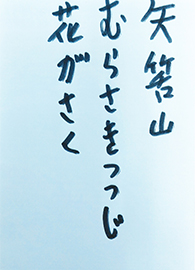 矢筈山
むらさきつつじ
花がさく